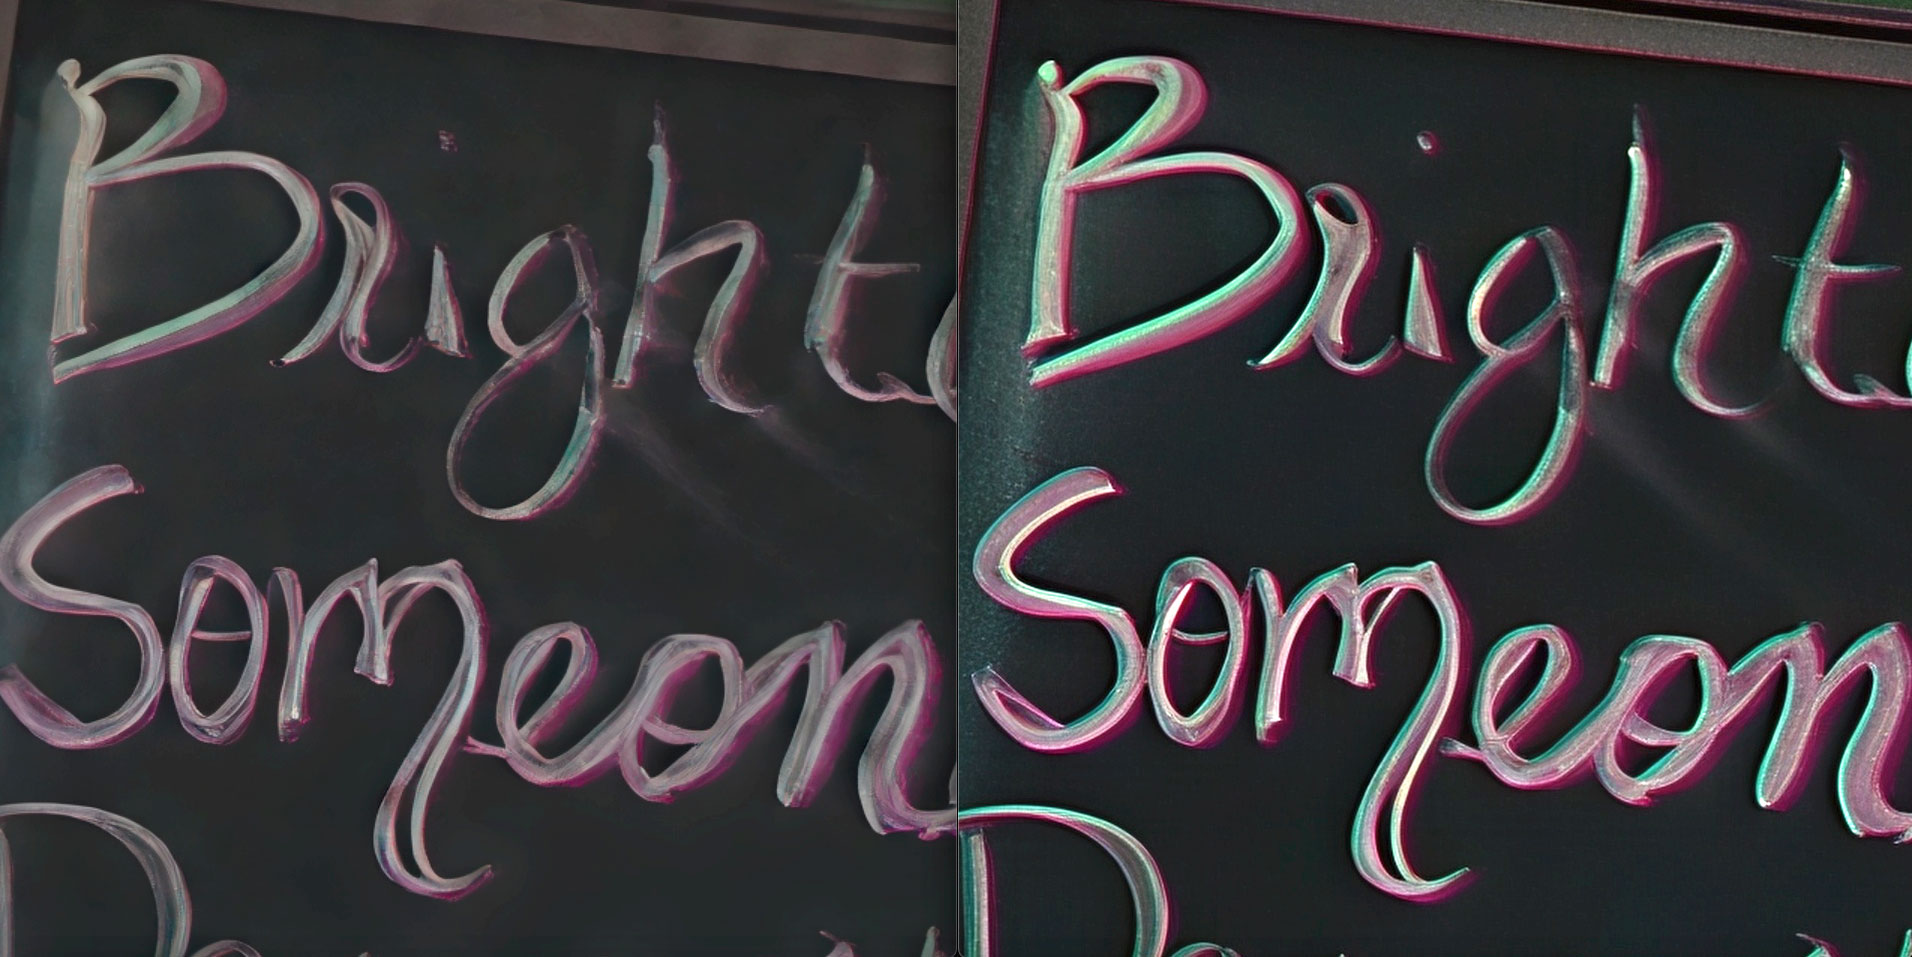 Bright
Someon
Bright
Someon